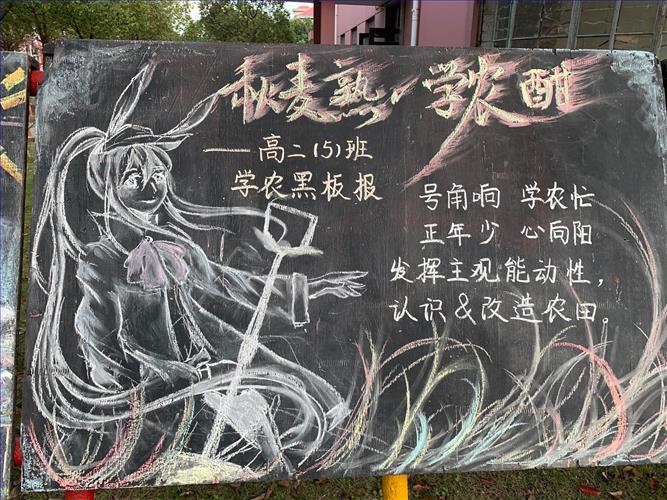 秋麦熟，学农酣
——高二(5)班
学农黑板报
号角响 学农忙
正年少 心向阳
发挥主观能动性，
认识&改造农田。